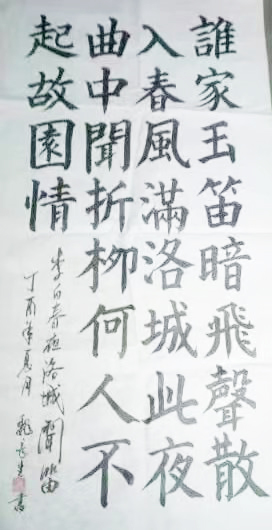 誰家玉笛暗飛聲散
入春風滿洛城此夜
曲中聞折柳何人不
起故園情
李白春夜洛城聞笛
丁酉年夏月
書